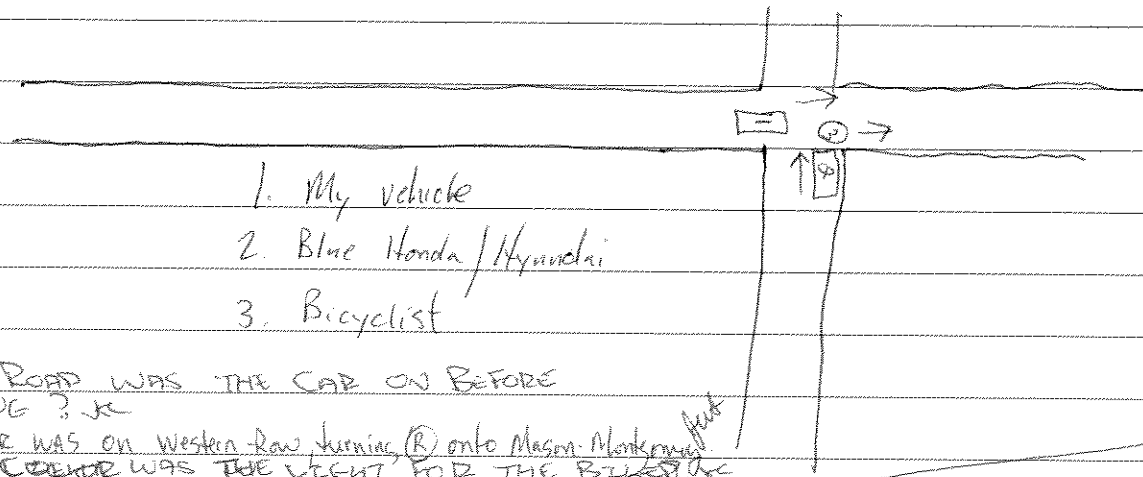 1
3
2
1. My vehicle
2. Blue Honda/Hyundai
3. Bicyclist
ROAD WAS THE CAR ON BEFORE
? JC
WAS on Western Row, turning (R) onto Mason-Montgomery
WAS THE LIGHT FOR THE